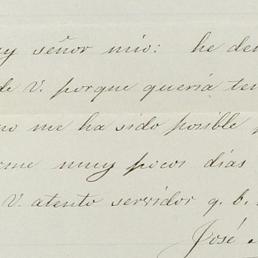 señor mio: he
de V. porque queria
me ha sido posible
muy pocos dias
V. atento servidor q. b.
José